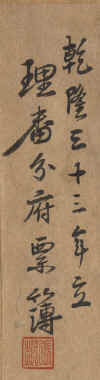 乾隆三十三年立
理番分府票簿